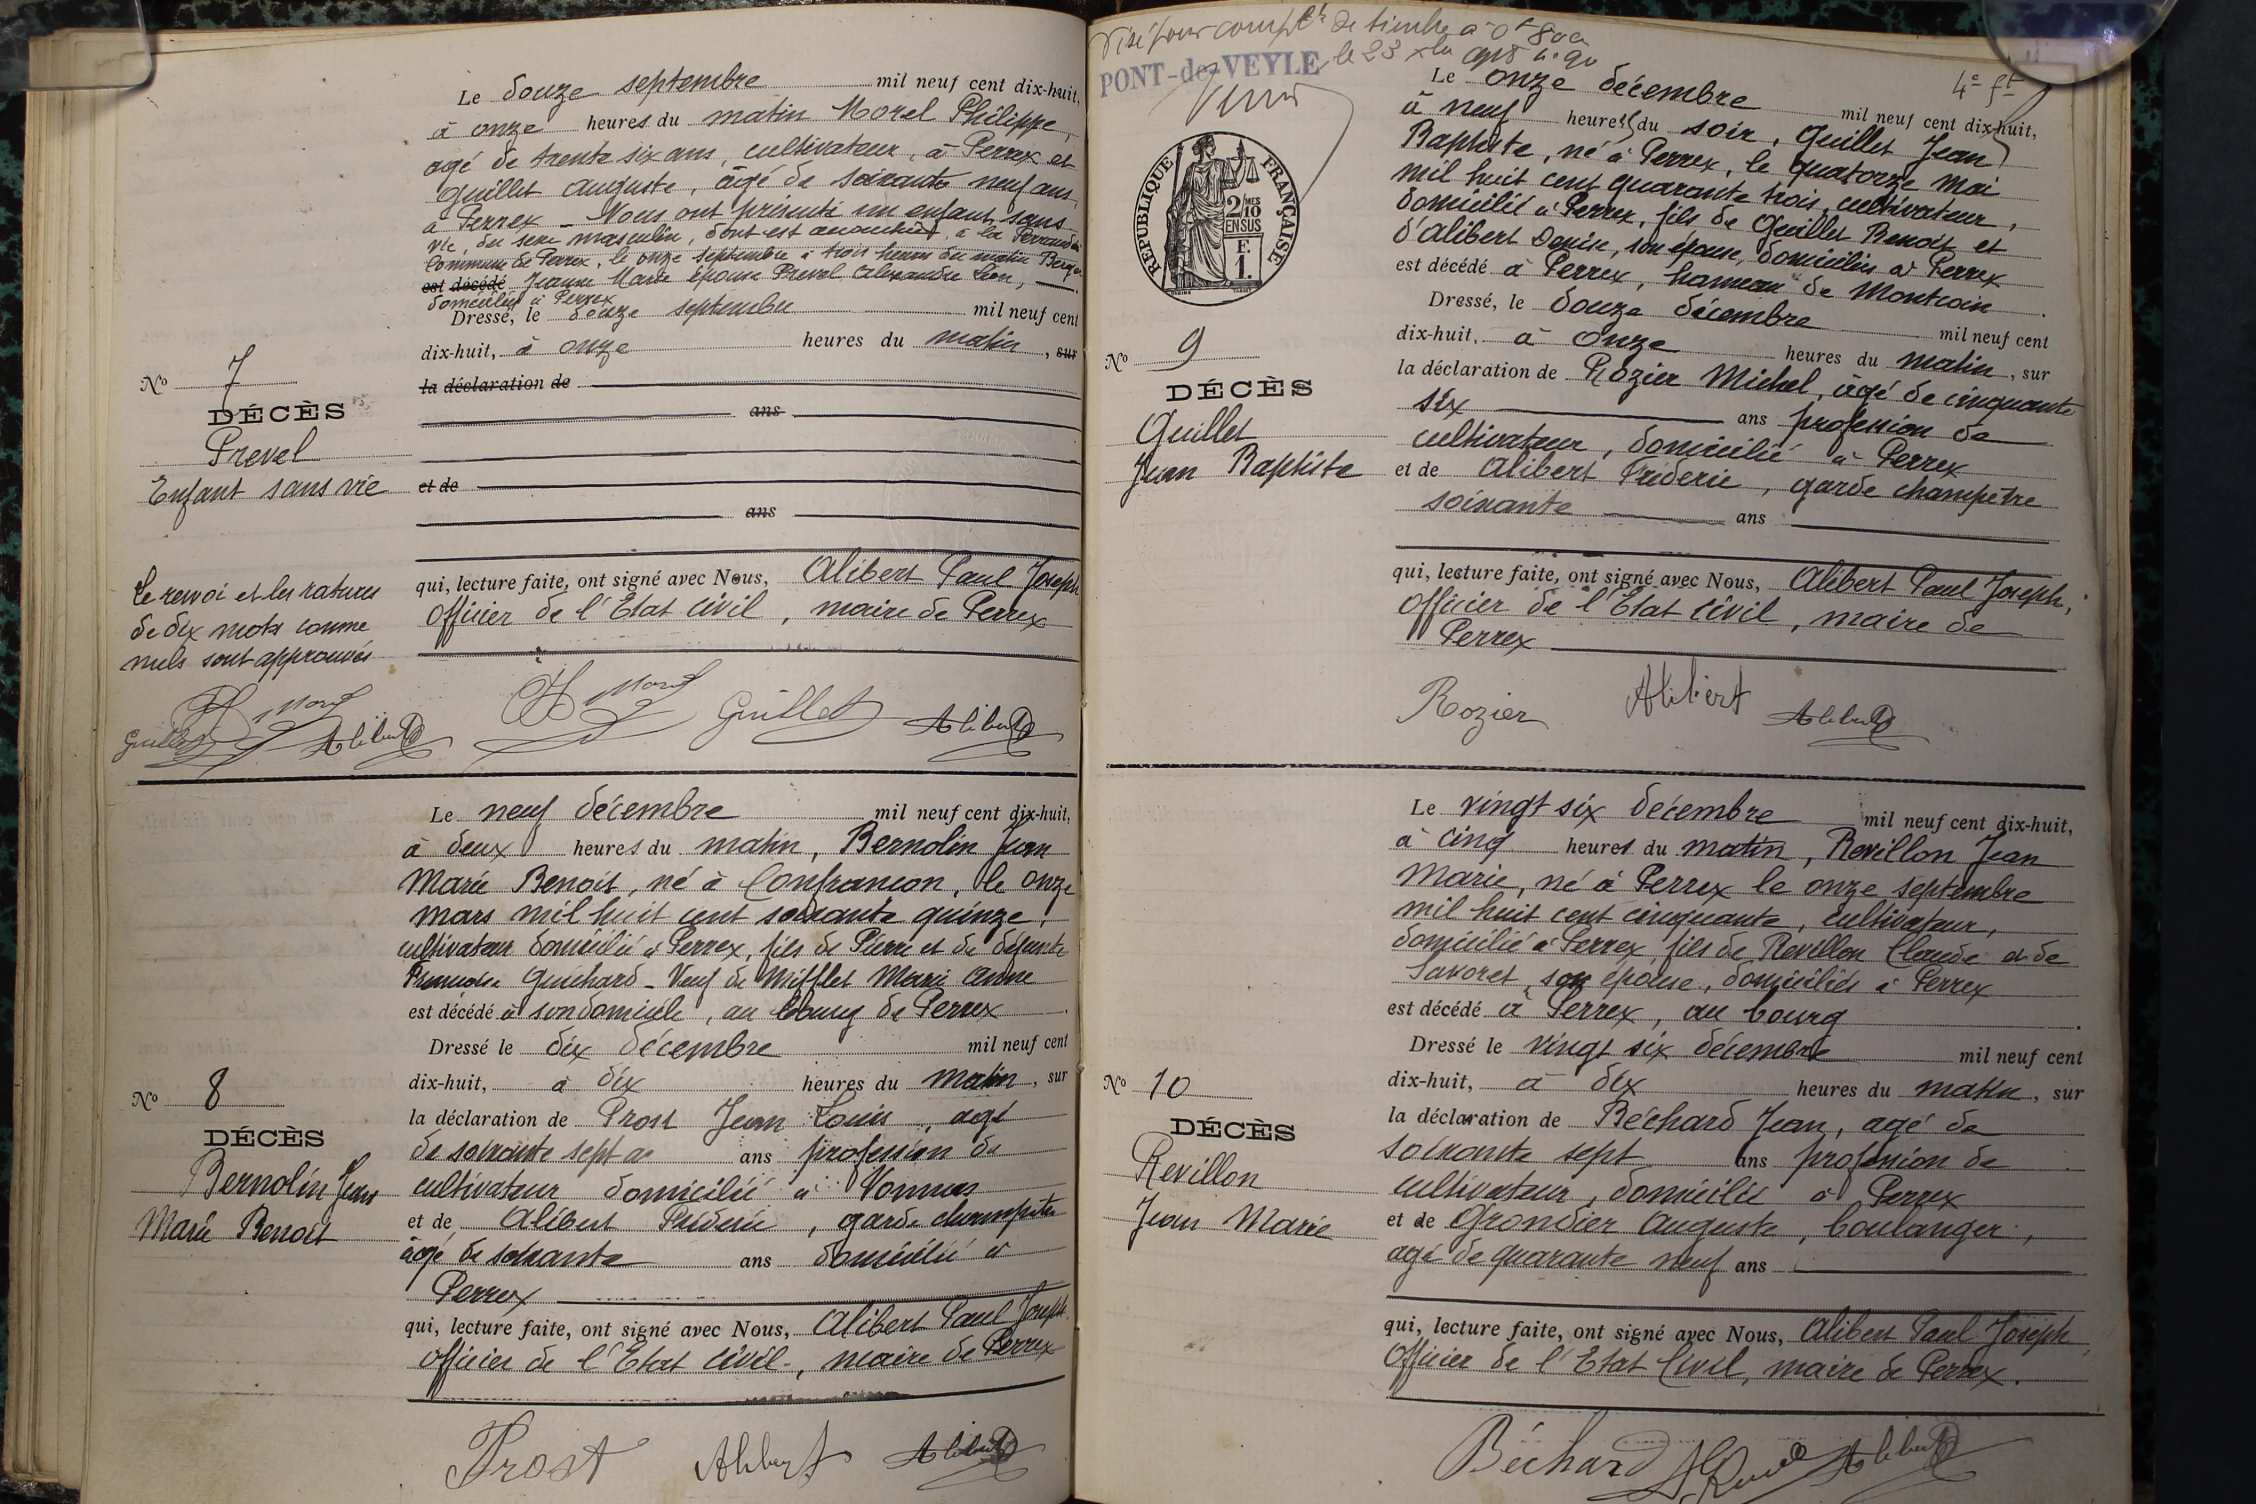 Le douze septembre mil neuf cent dix-huit,
à onze heures du matin Morel Philippe,
agé de trente six ans, cultivateur, à Perrex et
Guillet Auguste, âgé de soixante neuf ans,
à Perrex - Nous ont présenté un enfant sans
vie, du sexe masculin, dont est accouchée, à la
Commune de Perrex, le onze septembre à trois heures du matin
est décédé Jeanne Marie épouse Prevel Alexandre Léon,
domiciliés à Perrex
Dressé, le douze septembre mil neuf cent
dix-huit, à onze heures du matin, sur
la déclaration de
ans
et de
ans
qui, lecture faite, ont signé avec Nous, Alibert Paul Joseph
Officier de l'Etat Civil, maire de Perrex
No 7
DÉCÈS
Prevel
Enfant sans vie
Le renvoi et les ratures
de dix mots comme
nuls sont approuvés
Guillet Morel Alibert
Morel Guillet Alibert
Le neuf décembre mil neuf cent dix-huit,
à deux heures du matin, Bernolin Jean
Marie Benoit, né à Confrançon, le onze
mars mil huit cent soixante quinze,
cultivateur domicilié à Perrex, fils de Pierre et de défunte
Françoise Guichard - Veuf de Mifflet Marie Anne
est décédé à son domicile, au bourg de Perrex
Dressé le dix décembre mil neuf cent
dix-huit, à dix heures du matin, sur
la déclaration de Prost Jean Louis, agé
de soixante sept ans profession de
cultivateur domicilié à Vonnas
et de Alibert Fréderic, garde champêtre
âgé de soixante ans domicilié à
Perrex
qui, lecture faite, ont signé avec Nous, Alibert Paul Joseph
Officier de l'Etat Civil, maire de Perrex
No 8
DÉCÈS
Bernolin Jean
Marie Benoit
Prost Alibert Alibert
Visé pour compt de timbre à 0f 80c
PONT-de-VEYLE le 23 xbre 1918 no 90
4e ft
RÉPUBLIQUE FRANÇAISE
2/10 MES
EN SUS
F.
1.
Le onze décembre mil neuf cent dix-huit,
à neuf heures du soir, Guillet Jean
Baptiste, né à Perrex, le quatorze mai
mil huit cent quarante trois, cultivateur,
domicilié à Perrex, fils de Guillet Benoit et
d'Alibert Denise, son épouse, domiciliés à Perrex
est décédé à Perrex, hameau de Montcoin
Dressé, le douze décembre mil neuf cent
dix-huit, à onze heures du matin, sur
la déclaration de Rozier Michel, âgé de cinquante
six ans profession de
cultivateur, domicilié à Perrex
et de Alibert Fréderic, garde champêtre
soixante ans
qui, lecture faite, ont signé avec Nous, Alibert Paul Joseph,
Officier de l'Etat Civil, maire de
Perrex
No 9
DÉCÈS
Guillet
Jean Baptiste
Rozier Alibert Alibert
Le vingt six décembre mil neuf cent dix-huit,
à cinq heures du matin, Revillon Jean
Marie, né à Perrex le onze septembre
mil huit cent cinquante, cultivateur,
domicilié à Perrex, fils de Revillon Claude et de
Savoret, son épouse, domiciliés à Perrex
est décédé à Perrex, au bourg
Dressé le vingt six décembre mil neuf cent
dix-huit, à dix heures du matin, sur
la déclaration de Béchard Jean, agé de
soixante sept ans profession de
cultivateur, domicilié à Perrex
et de Grondier Auguste, boulanger,
agé de quarante neuf ans
qui, lecture faite, ont signé avec Nous, Alibert Paul Joseph,
Officier de l'Etat Civil, maire de Perrex.
No 10
DÉCÈS
Revillon
Jean Marie
Béchard Alibert